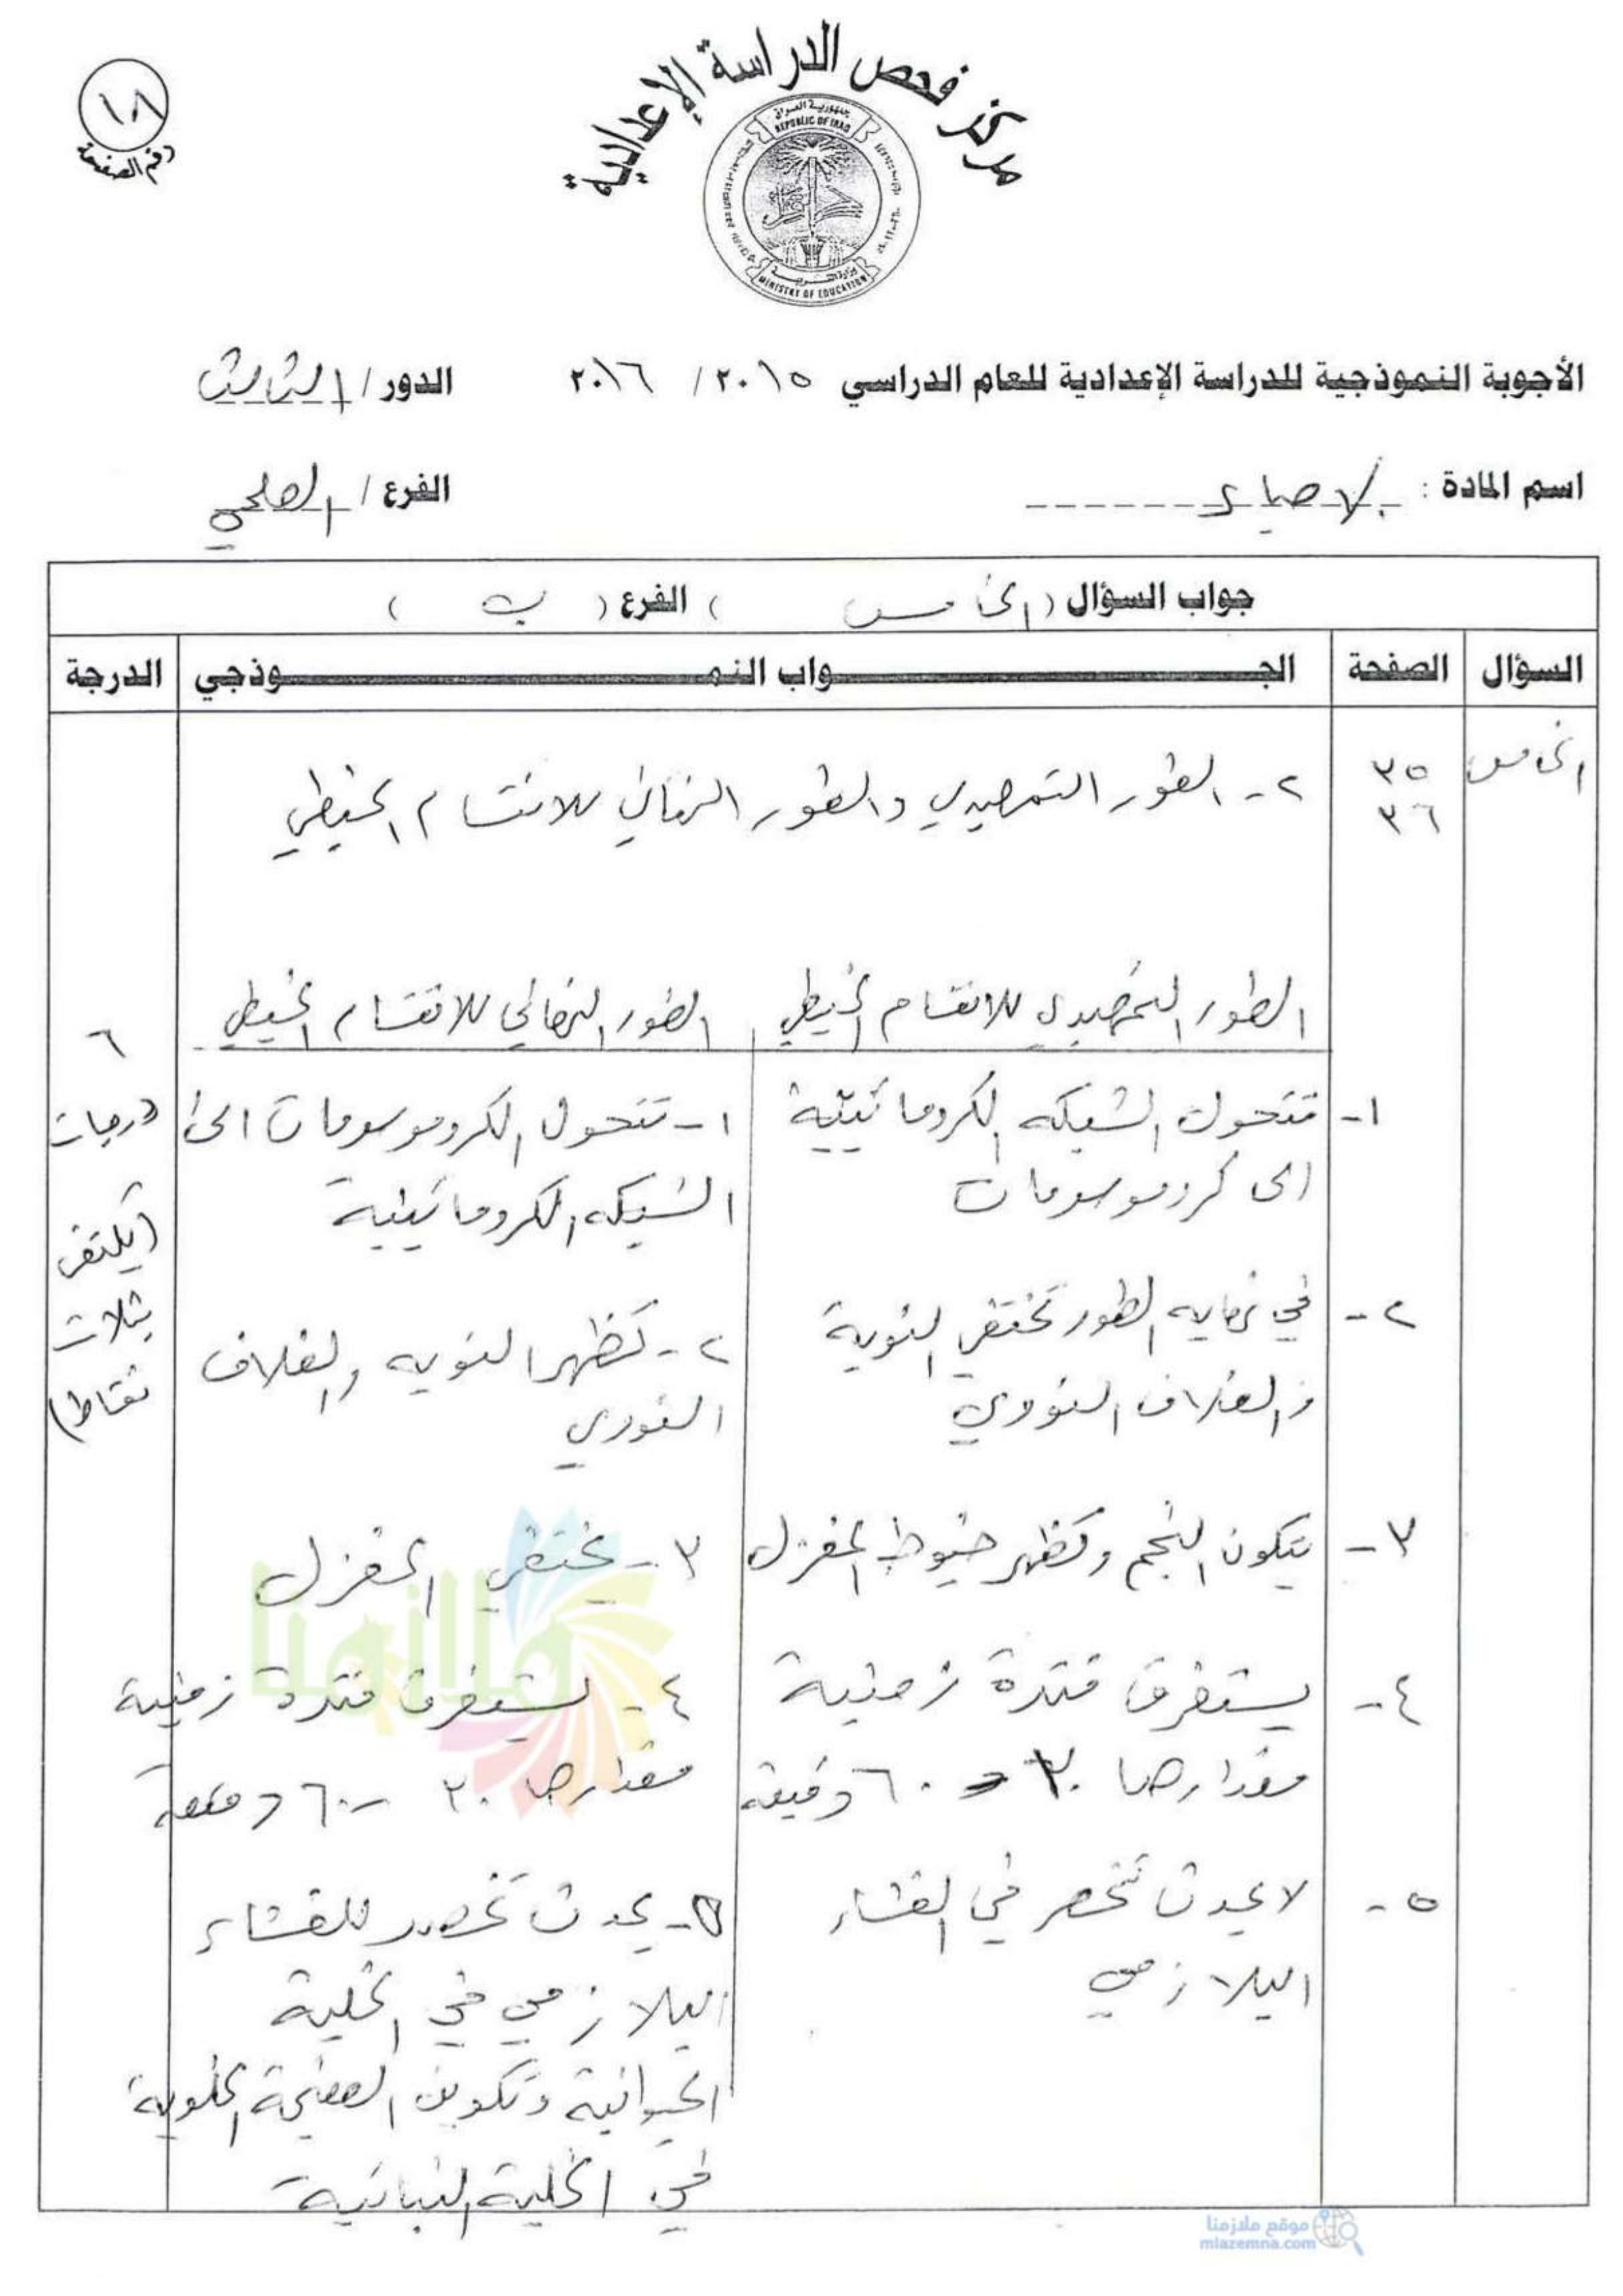 ١٨
رقم الصفحة
مركز فحص الدراسة الإعدادية
جمهورية العراق
REPUBLIC OF IRAQ
MINISTRY OF EDUCATION
الأجوبة النموذجية للدراسة الإعدادية للعام الدراسي ٢٠١٥ / ٢٠١٦ الدور / الثالث
اسم المادة : الاحياء الفرع / العلمي
جواب السؤال ( الخامس ) الفرع ( ب )
السؤال الصفحة الجـــواب النمـــوذجي الدرجة
الخامس ٣٥ ٢- الطور التمهيدي والطور النهائي للانقسام الخيطي
٣٦
الطور التمهيدي للانقسام الخيطي الطور النهائي للانقسام الخيطي
١- تتحول الشبكه الكروماتينية الى كروموسومات
١- تتحول الكروموسومات الى الشبكه الكروماتينية
٢- في نهايه الطور تختفي النوية والغلاف النووي
٢- تظهر النويه والغلاف النووي
٣- يتكون النجم وتظهر خيوط المغزل
٣- يختفي المغزل
٤- يستغرق فترة زمنية مقدارها ٣٠ - ٦٠ دقيقة
٤- يستغرق فترة زمنية مقدارها ٣٠ - ٦٠ دقيقة
٥- لا يحدث تخصر في الغشاء البلازمي
٥- يحدث تخصر للغشاء البلازمي في الخلية
الحيوانية وتكوين الصفيحة الخلوية
في الخلية النباتية
٦
درجات
(يكتفى
بثلاث
نقاط)
ملازمنا
موقع ملازمنا
mlazemna.com